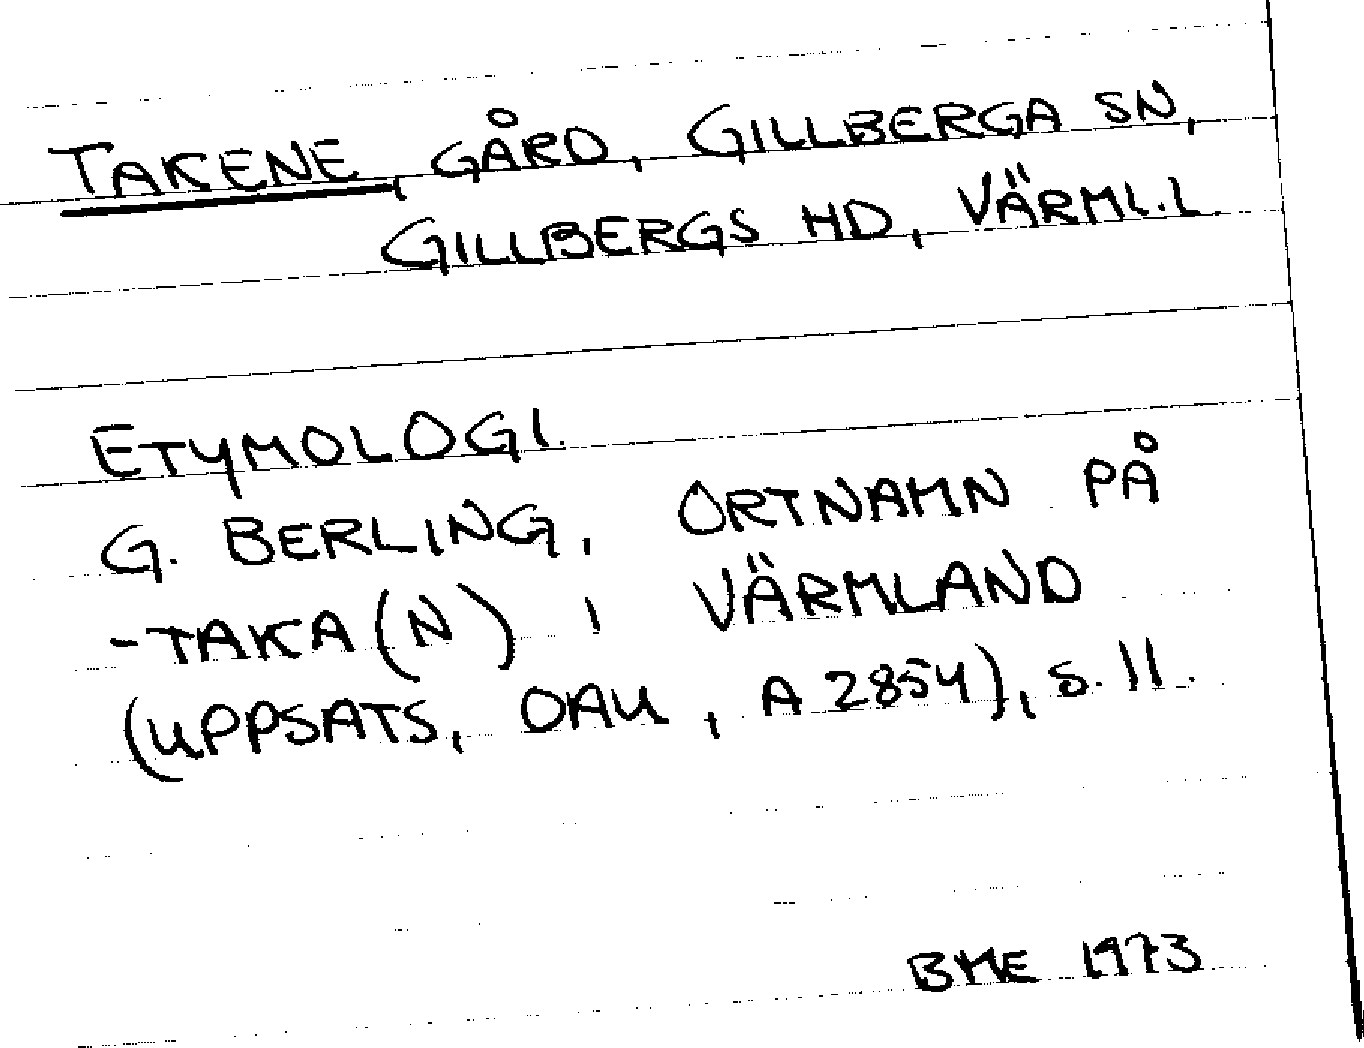 TAKENE, GÅRD, GILLBERGA SN,
GILLBERGS HD, VÄRML.L.
ETYMOLOGI.
G. BERLING, ORTNAMN PÅ
-TAKA(N) I VÄRMLAND
(UPPSATS, OAU, A 2854), S. 11.
BME 1973